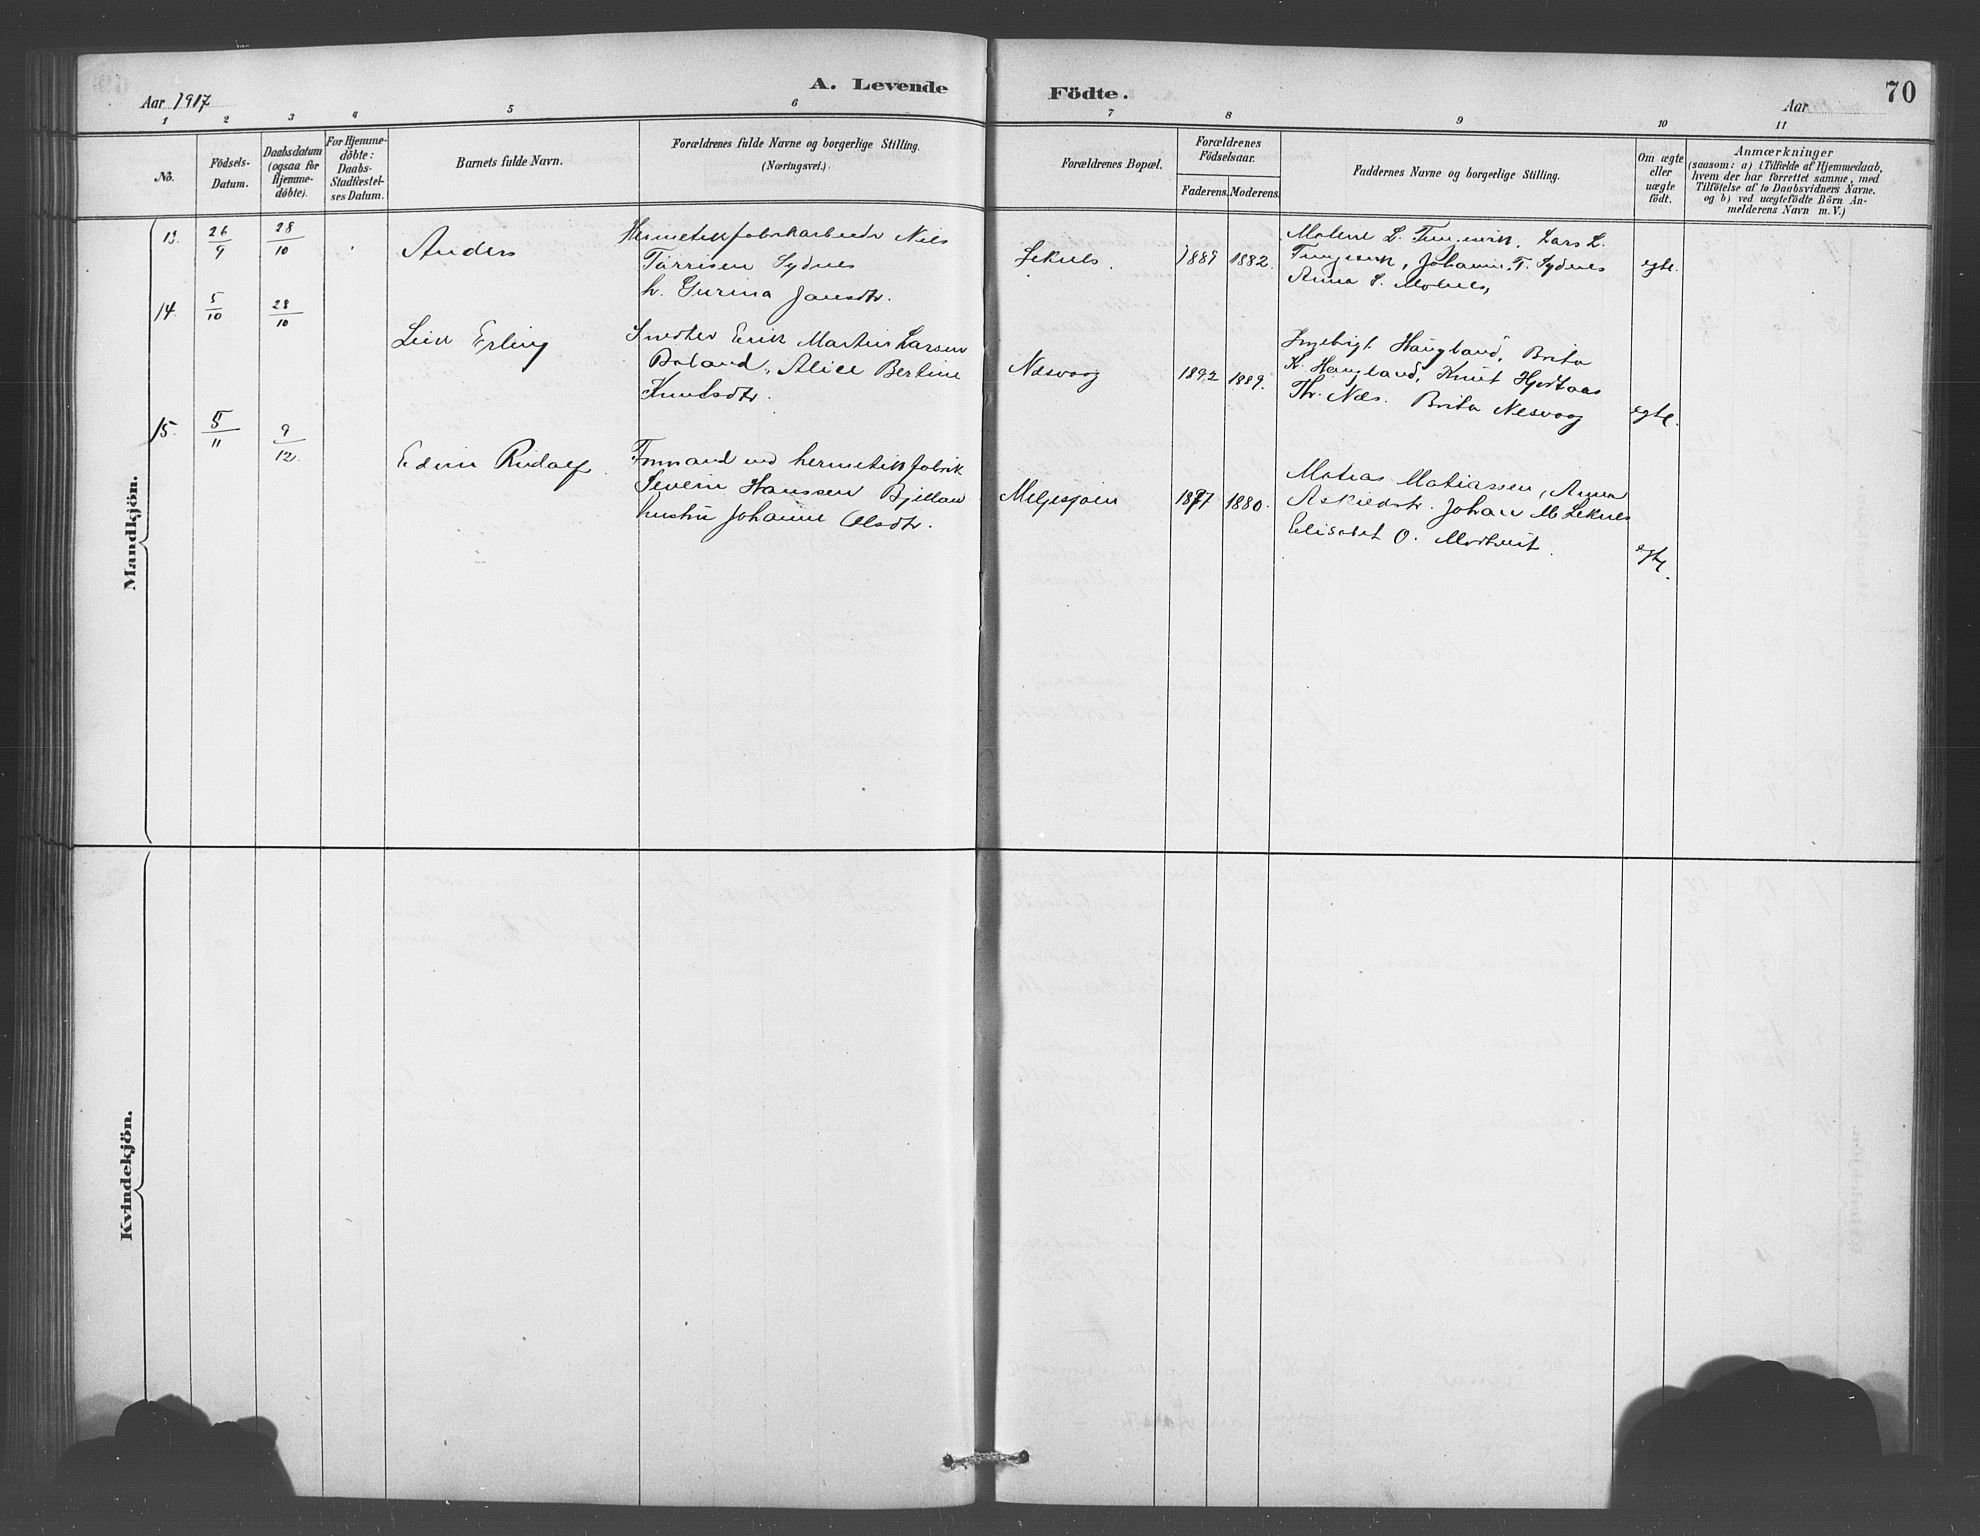 Aar 1917
A. Levende
Födte.
Aar
70
1 2 3 4 5 6 7 8 9 10 11
No.
Födsels-
Datum.
Daabsdatum
(ogsaa for
Hjemme-
döbte).
For Hjemme-
döbte:
Daabs-
Stadfæstel-
ses Datum.
Barnets fulde Navn.
Forældrenes fulde Navne og borgerlige Stilling.
(Næringsvei.)
Forældrenes Bopæl.
Forældrenes
Födselsaar.
Faderens. Moderens.
Faddernes Navne og borgerlige Stilling.
Om ægte
eller
uægte
födt.
Anmærkninger
(saasom: a) i Tilfælde af Hjemmedaab,
hvem der har forrettet samme, med
Tilföielse af to Daabsvidners Navne.
og b) ved uægtefödte Börn An-
melderens Navn m. V.)
Mandkjön.
13. 26/9 28/10
Anders
Hermetikfabrikarbeider Nils
Tørrisen Sydnes
h. Gurina Jansdtr.
1889 1882.
Malene L. Lars L.
Johanne T. Sydnes
Anna S.
egte.
14. 5/10 28/10
Leiv Erling
Erik Martin Larsen
Alice Bertine
Knutsdtr.
Næsvaag
1892 1889.
Ingebrigt Haugland, Brita
K. Haugland, Knut Hjortaas
Th. Næs. Brita Nesvaag
egte.
15. 5/11 9/12
Edvin Rudolf.
Formand ved hermetikfabrik
Severin Hanssen
hustru Johanne Olsdtr.
1877 1880.
Matias Matiassen, Anna
Johan M Leknes
Elisabet O.
egte.
Kvindekjön.